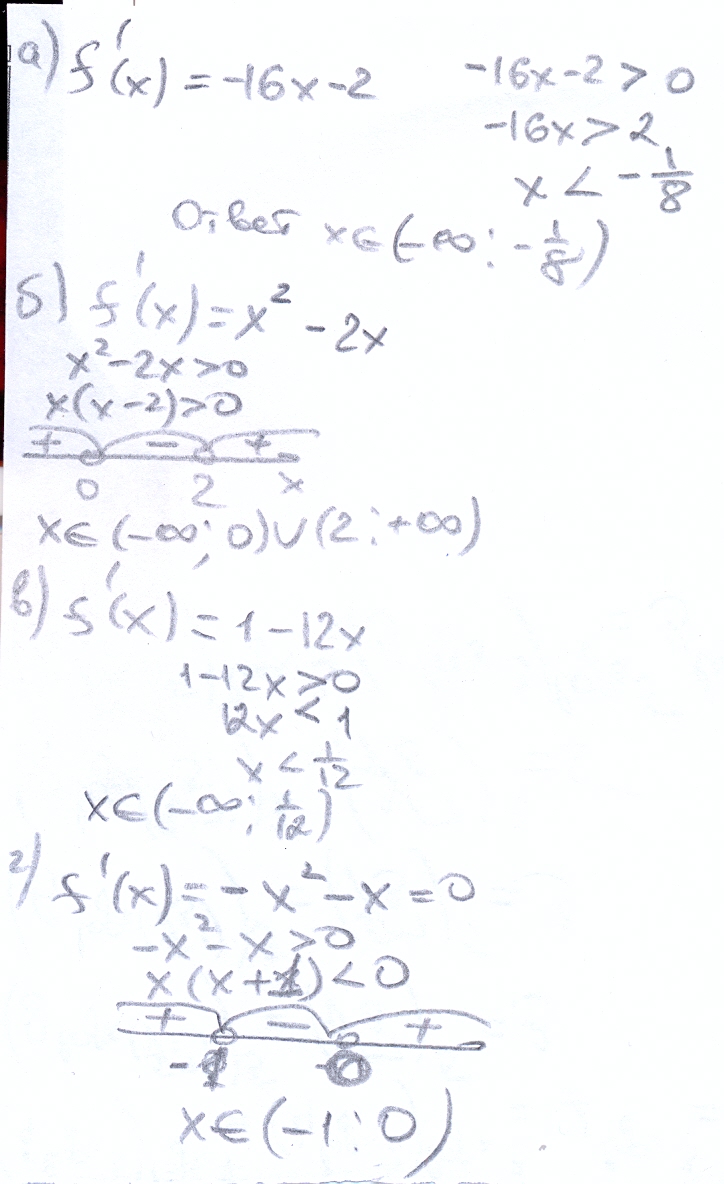 а) f'(x) = -16x-2
-16x-2 > 0
-16x > 2
x < -1/8
Ответ x∈(-∞; -1/8)
б) f'(x) = x² - 2x
x²-2x>0
x(x-2)>0
+ - +
0 2 x
x∈(-∞; 0)∪(2; +∞)
в) f'(x) = 1-12x
1-12x>0
12x < 1
x < 1/12
x∈(-∞; 1/12)
г) f'(x) = -x²-x = 0
-x²-x>0
x(x+1)<0
+ - +
-1 0
x∈(-1; 0)